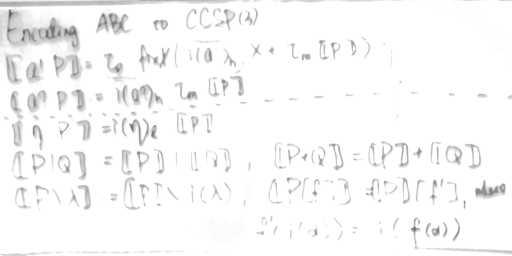 Encoding ABC to CCSP(3)
⟦a! P⟧ = τ₀ fix X ( i(a)ₕ X + τₘ ⟦P⟧ )
⟦a? P⟧ = i(a)ₕ τₘ ⟦P⟧
⟦η P⟧ = i(η)ₑ ⟦P⟧
⟦P|Q⟧ = ⟦P⟧ | ⟦Q⟧, ⟦P+Q⟧ = ⟦P⟧ + ⟦Q⟧
⟦P\λ⟧ = ⟦P⟧ \ i(λ), ⟦P[f]⟧ = ⟦P⟧[f'],
f'(i(a)) = i(f(a))